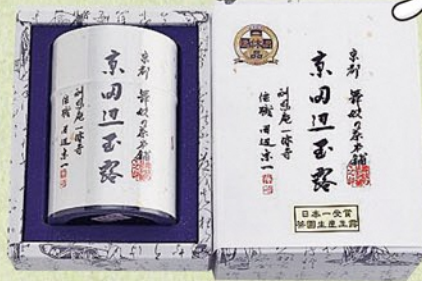 京都 舞妓の茶本舗
京田辺玉露
酬恩庵 一休寺
住職 田辺宗一
京都 舞妓の茶本舗
京田辺玉露
酬恩庵 一休寺
住職 田辺宗一
日本一受賞
茶園生産玉露